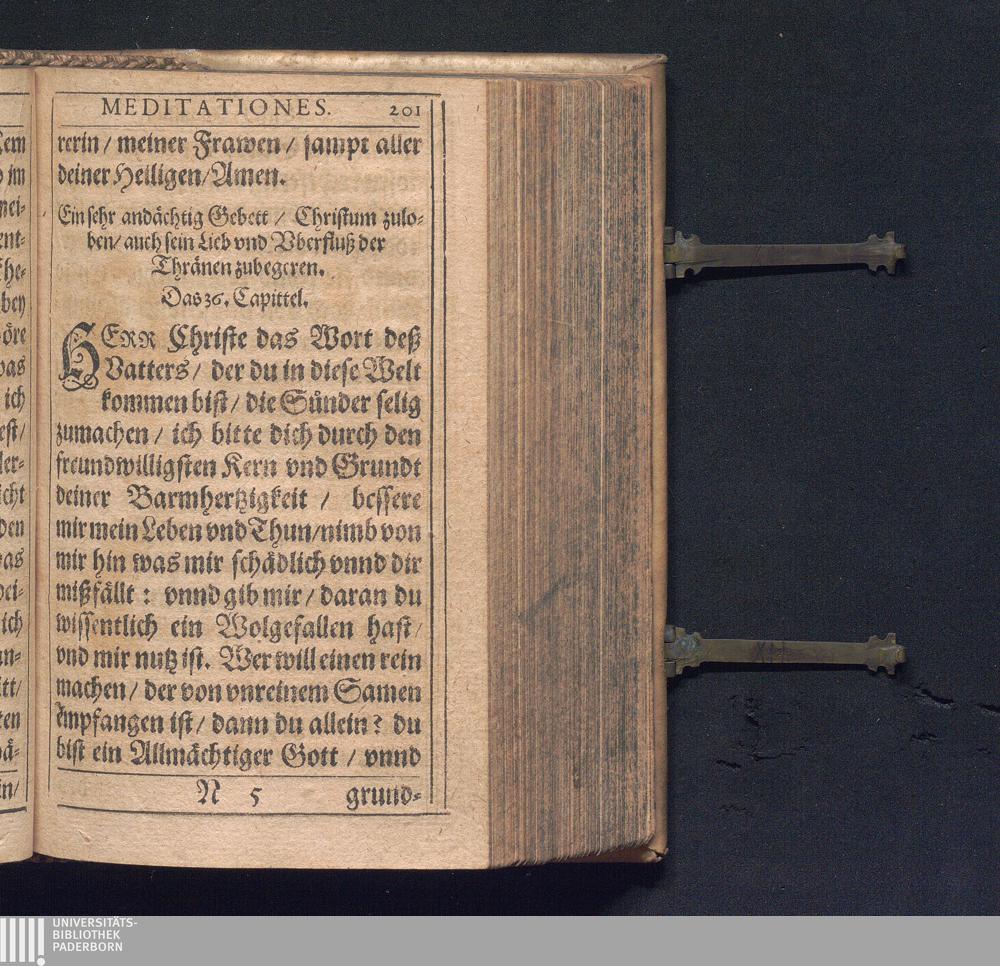 MEDITATIONES. 201
rerin / meiner Frawen / sampt aller
deiner Heiligen / Amen.
Ein sehr andächtig Gebett / Christum zulo-
ben / auch sein Lieb vnd Vberfluß der
Thränen zubegeren.
Das 36. Capittel.
HERR Christe das Wort deß
Vatters / der du in diese Welt
kommen bist / die Sünder selig
zumachen / ich bitte dich durch den
freundwilligsten Kern vnd Grundt
deiner Barmhertzigkeit / bessere
mir mein Leben vnd Thun / nimb von
mir hin was mir schädlich vnnd dir
mißfällt : vnnd gib mir / daran du
wissentlich ein Wolgefallen hast /
vnd mir nutz ist. Wer will einen rein
machen / der von vnreinem Samen
empfangen ist / dann du allein? du
bist ein Allmächtiger Gott / vnnd
N 5 grund-
im
nei-
ent-
bey
öre
ich
est /
ler-
icht
den
ich
itt /
ten
in /
UNIVERSITÄTS-
BIBLIOTHEK
PADERBORN